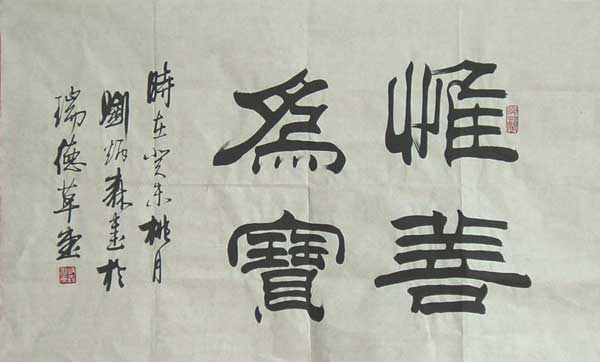 惟善
為寶
時在癸未桃月
劉炳森書於
瑞德草堂